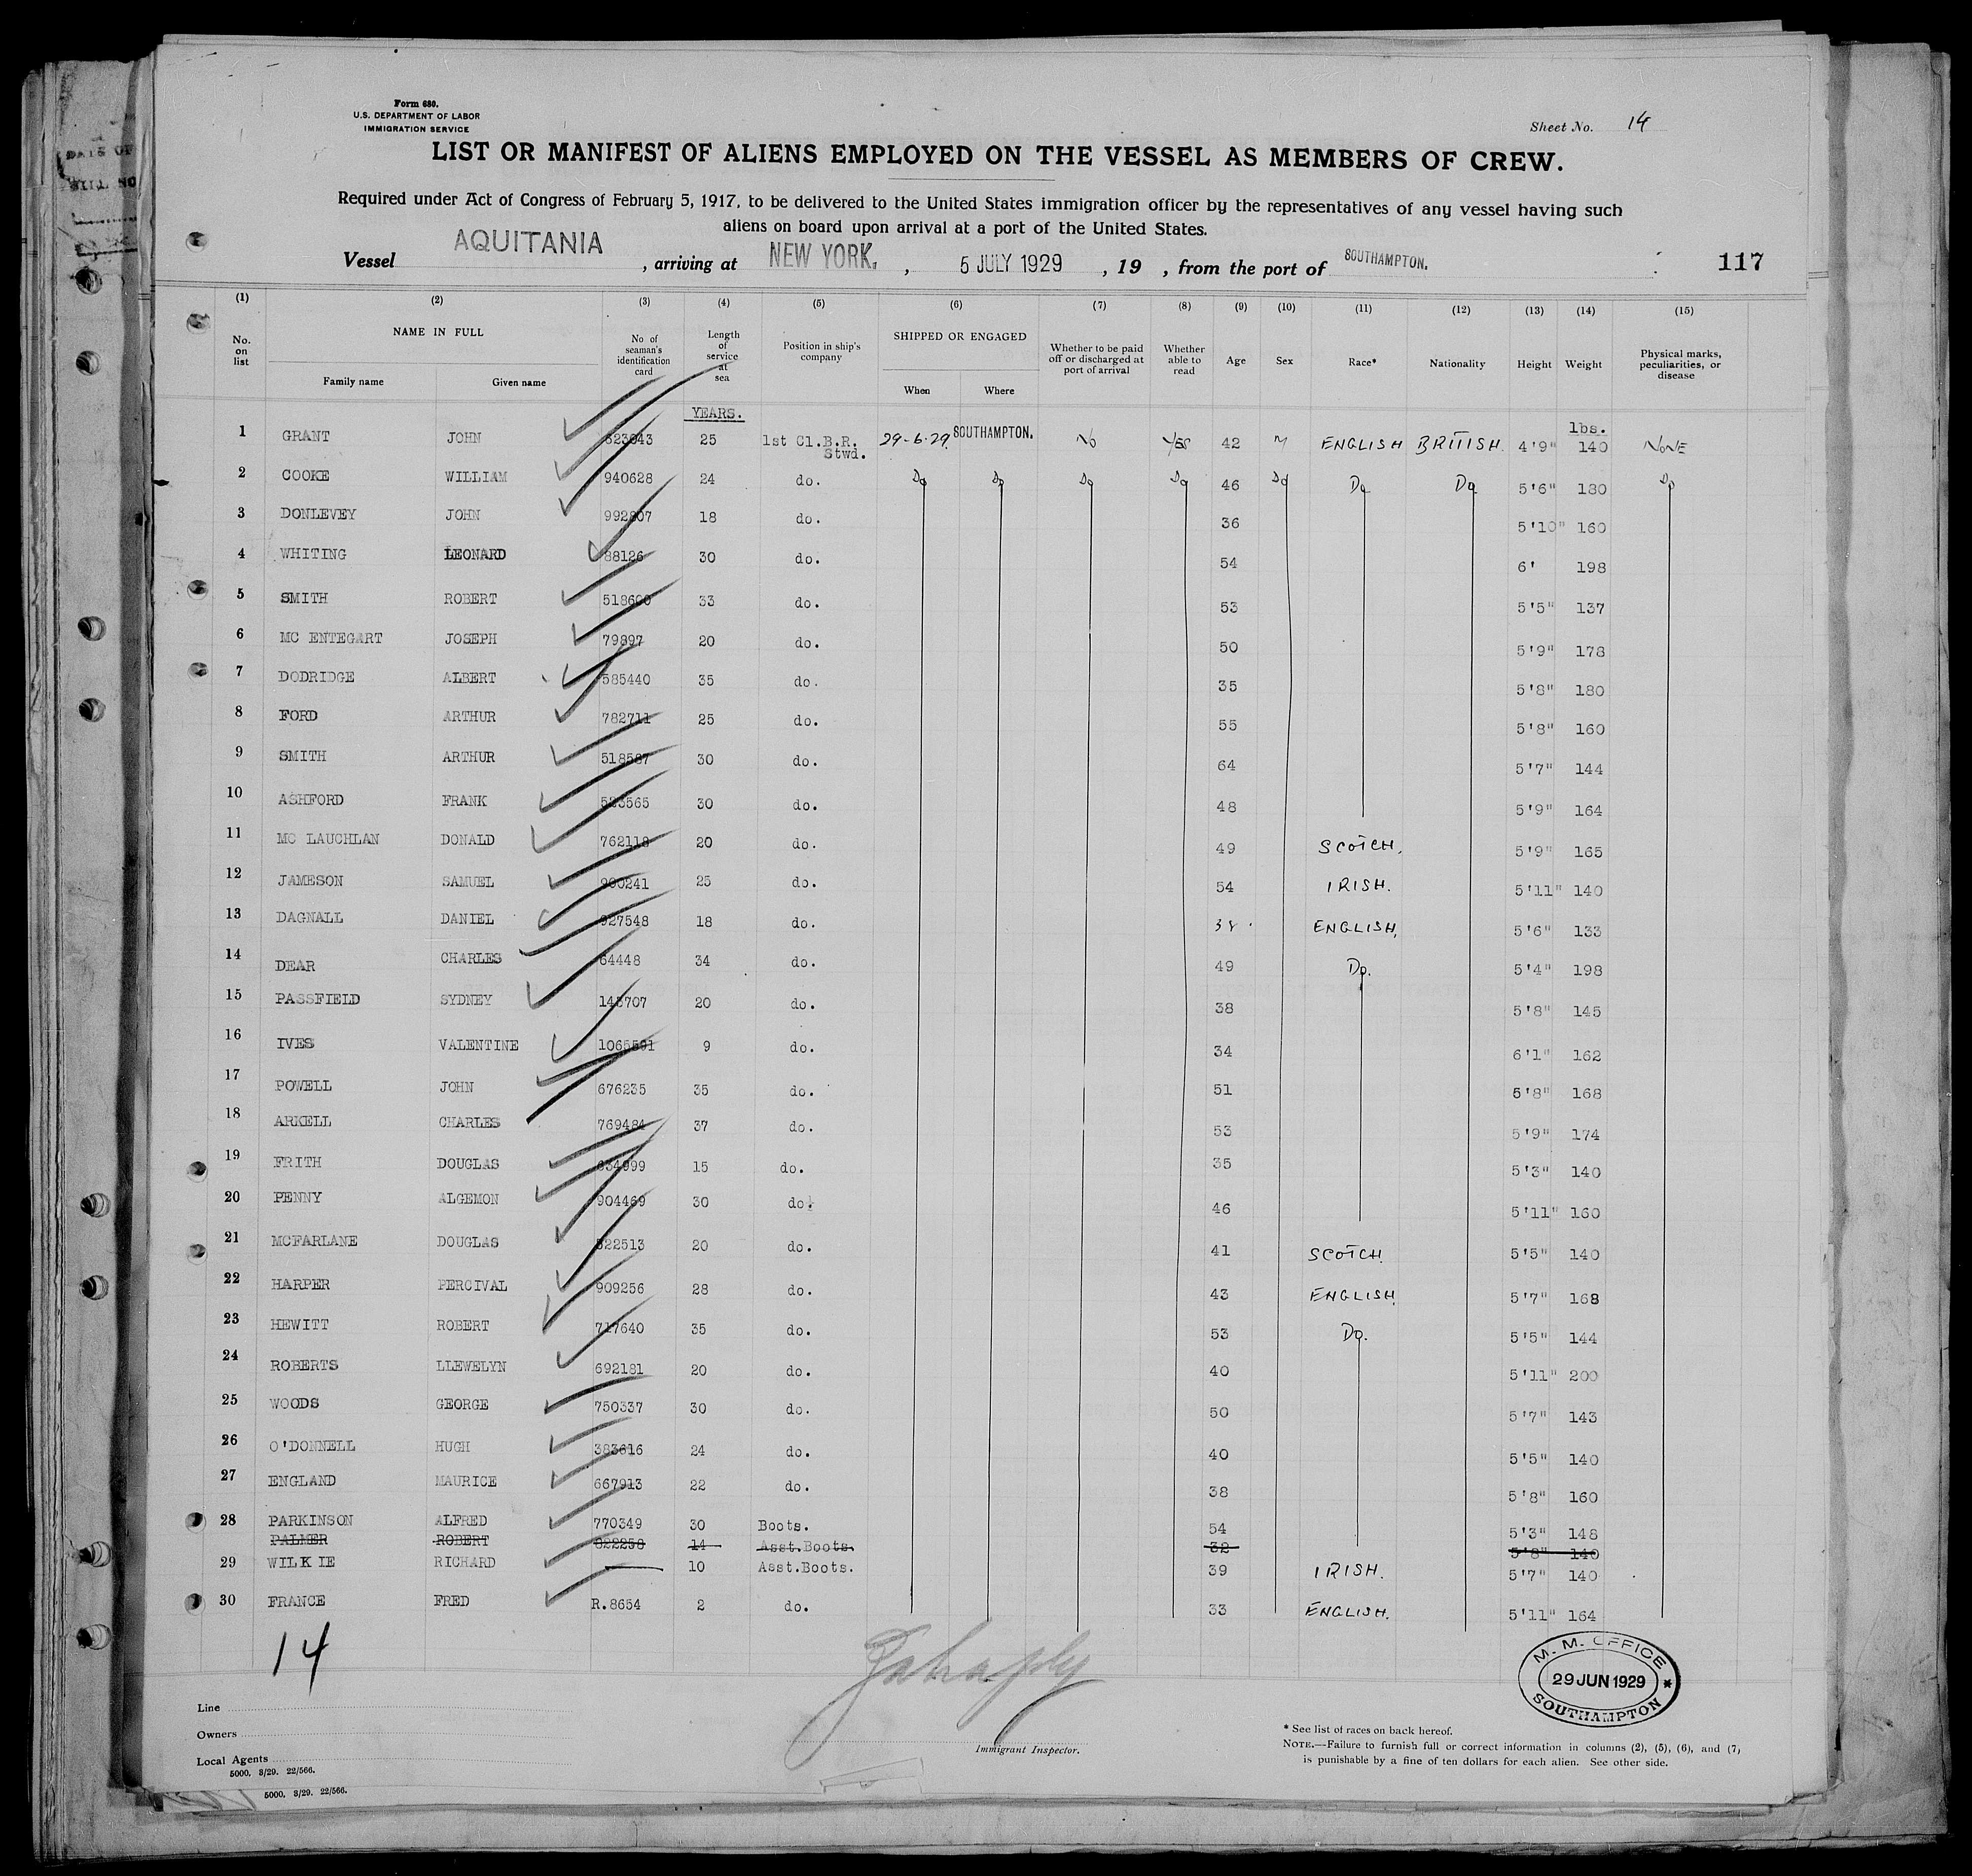 Form 680.
U.S. DEPARTMENT OF LABOR
IMMIGRATION SERVICE
Sheet No. 14
LIST OR MANIFEST OF ALIENS EMPLOYED ON THE VESSEL AS MEMBERS OF CREW.
Required under Act of Congress of February 5, 1917, to be delivered to the United States immigration officer by the representatives of any vessel having such
aliens on board upon arrival at a port of the United States.
Vessel AQUITANIA , arriving at NEW YORK. , 5 JULY 1929 , 19 , from the port of SOUTHAMPTON. 117
(1) (2) (3) (4) (5) (6) (7) (8) (9) (10) (11) (12) (13) (14) (15)
No. on list NAME IN FULL Family name Given name No of seaman's identification card Length of service at sea Position in ship's company SHIPPED OR ENGAGED When Where Whether to be paid off or discharged at port of arrival Whether able to read Age Sex Race* Nationality Height Weight Physical marks, peculiarities, or disease
YEARS. lbs.
1 GRANT JOHN 623043 25 1st Cl.B.R. Stwd. 29-6-29 SOUTHAMPTON. No Yes 42 M ENGLISH BRITISH. 4'9" 140 NONE
2 COOKE WILLIAM 940628 24 do. Do Do Do Do 46 Do Do Do 5'6" 180 Do
3 DONLEVEY JOHN 992807 18 do. 36 5'10" 160
4 WHITING LEONARD 88126 30 do. 54 6' 198
5 SMITH ROBERT 33 do. 53 5'5" 137
6 MC ENTEGART JOSEPH 79897 20 do. 50 5'9" 178
7 DODRIDGE ALBERT 585440 35 do. 35 5'8" 180
8 FORD ARTHUR 782711 25 do. 55 5'8" 160
9 SMITH ARTHUR 518587 30 do. 64 5'7" 144
10 ASHFORD FRANK 523565 30 do. 48 5'9" 164
11 MC LAUCHLAN DONALD 762118 20 do. 49 SCOTCH. 5'9" 165
12 JAMESON SAMUEL 900241 25 do. 54 IRISH. 5'11" 140
13 DAGNALL DANIEL 927548 18 do. 38 ENGLISH. 5'6" 133
14 DEAR CHARLES 64448 34 do. 49 Do. 5'4" 198
15 PASSFIELD SYDNEY 20 do. 38 5'8" 145
16 IVES VALENTINE 1065591 9 do. 34 6'1" 162
17 POWELL JOHN 676235 35 do. 51 5'8" 168
18 ARKELL CHARLES 769484 37 do. 53 5'9" 174
19 FRITH DOUGLAS 15 do. 35 5'3" 140
20 PENNY ALGEMON 904469 30 do. 46 5'11" 160
21 MCFARLANE DOUGLAS 20 do. 41 SCOTCH. 5'5" 140
22 HARPER PERCIVAL 909256 28 do. 43 ENGLISH. 5'7" 168
23 HEWITT ROBERT 717640 35 do. 53 Do. 5'5" 144
24 ROBERTS LLEWELYN 692181 20 do. 40 5'11" 200
25 WOODS GEORGE 750337 30 do. 50 5'7" 143
26 O'DONNELL HUGH 383616 24 do. 40 5'5" 140
27 ENGLAND MAURICE 667913 22 do. 38 5'8" 160
28 PARKINSON ALFRED 770349 30 Boots. 54 5'3" 148
PALMER ROBERT 822258 14 Asst.Boots. 32 5'8" 140
29 WILKIE RICHARD 10 Asst.Boots. 39 IRISH. 5'7" 140
30 FRANCE FRED R.8654 2 do. 33 ENGLISH. 5'11" 164
14
M. M. OFFICE
29 JUN 1929
SOUTHAMPTON
Line
Owners
Local Agents
5000. 3/29. 22/566.
Immigrant Inspector.
* See list of races on back hereof.
NOTE.—Failure to furnish full or correct information in columns (2), (5), (6), and (7)
is punishable by a fine of ten dollars for each alien. See other side.
5000. 3/29. 22/566.